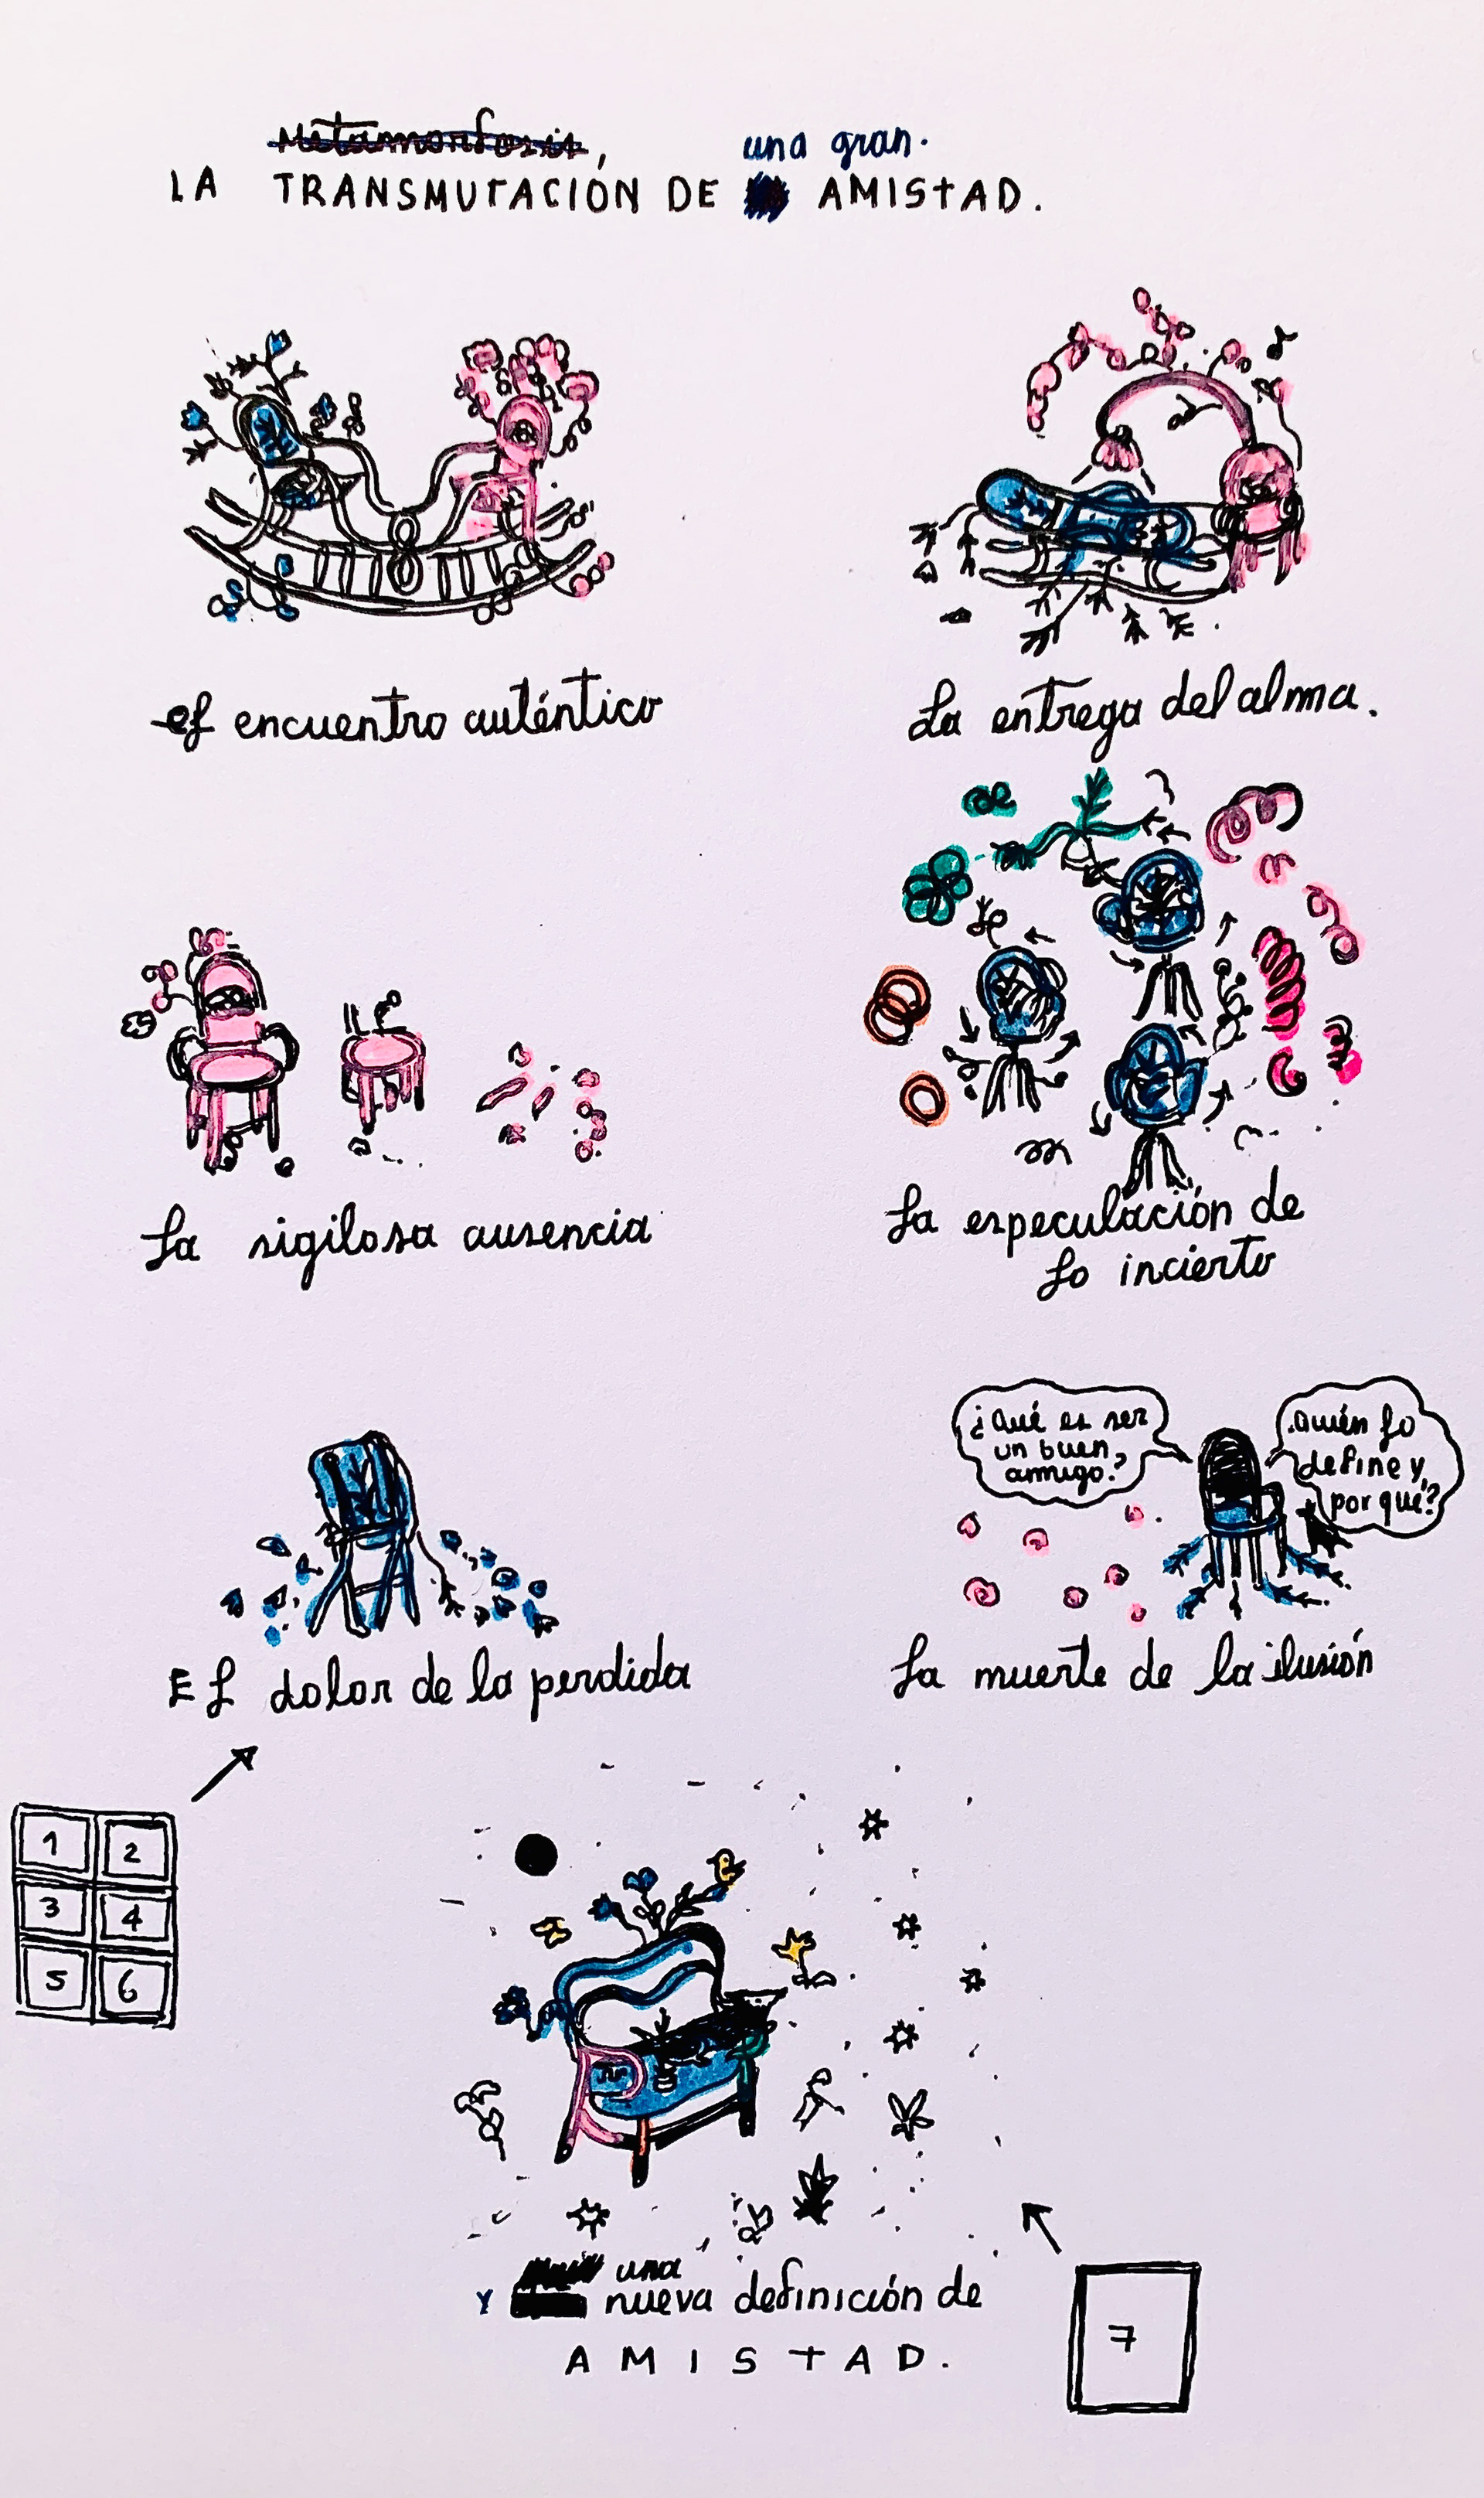 Metamorfosis,
una gran.
LA TRANSMUTACIÓN DE AMISTAD.
el encuentro auténtico
La entrega del alma.
La sigilosa ausencia
La especulación de
lo incierto
¿Qué es ser
un buen
amigo?
Quién lo
define y
por qué?
El dolor de la perdida
La muerte de la ilusión
1 2
3 4
5 6
una
Y nueva definición de
AMISTAD.
7